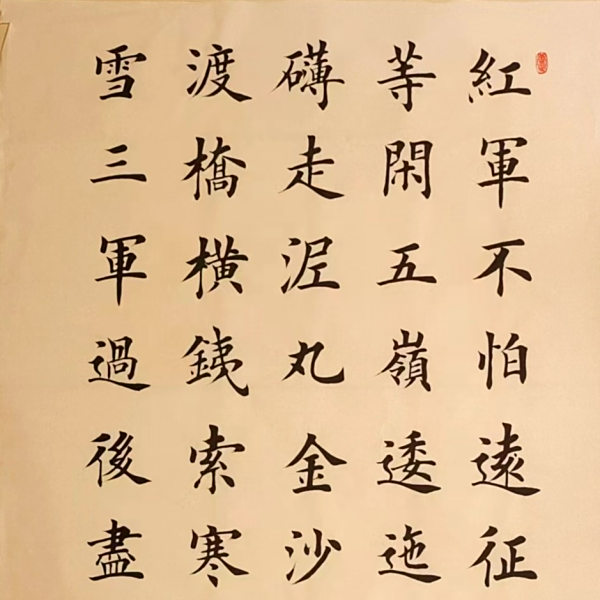 紅軍不怕遠征
等閑五嶺逶迤
礡走泥丸金沙
渡橋橫銕索寒
雪三軍過後盡